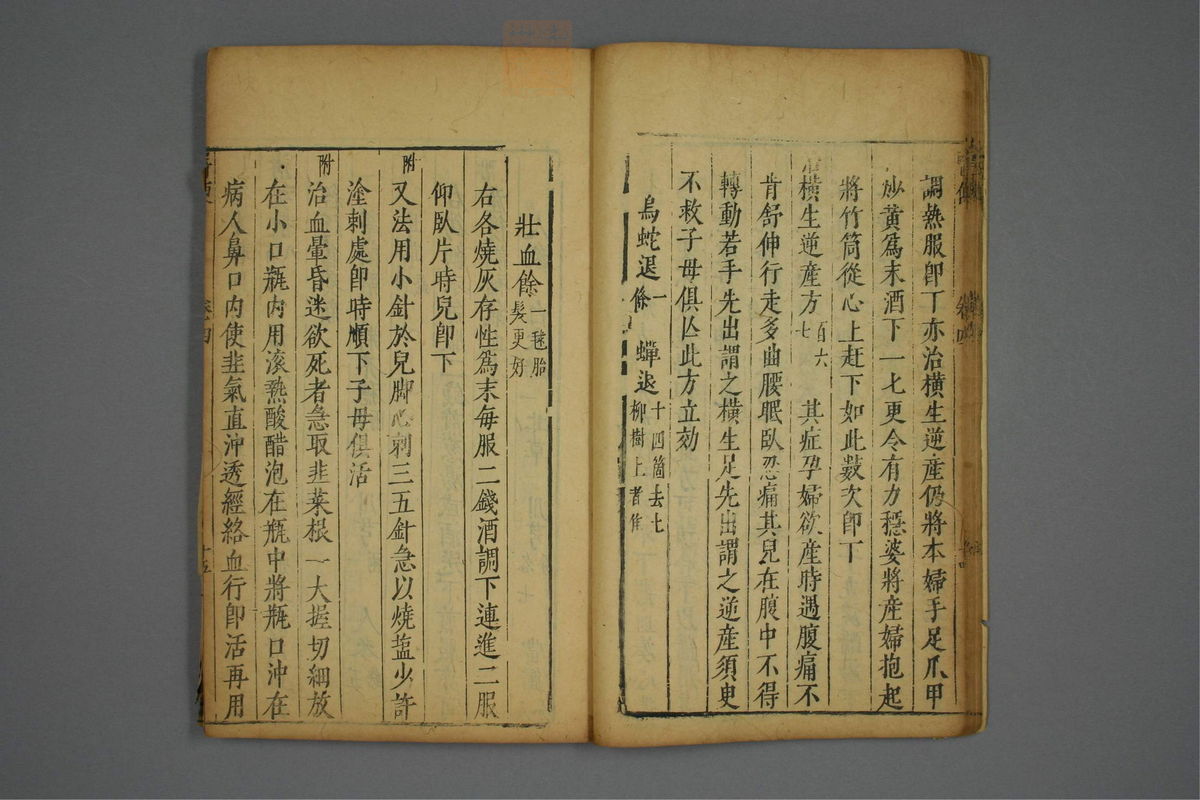 調熱服即丁亦治橫生逆產仍將本婦手足爪甲
炒黃爲末酒下一七更令有力穩婆將產婦抱起
將竹筒從心上赶下如此數次即丁
橫生逆產方 百六七 其症孕婦欲產時遇腹痛不
肯舒伸行走多曲腰眠臥忍痛其兒在腹中不得
轉動若手先出謂之橫生足先出謂之逆產須臾
不救子母俱亾此方立効
烏蛇退一條 蟬退十四箇去七柳樹上者隹
壯血餘一毬胎髮更好
右各燒灰存性爲末每服二錢酒調下連進二服
仰臥片時兒即下
附 又法用小針於兒脚心刺三五針急以燒塩少許
塗刺處即時順下子母俱活
附 治血暈昏迷欲死者急取韭菜根一大握切細放
在小口瓶內用滚熱酸醋泡在瓶中將瓶口沖在
病人鼻口內使韭氣直沖透經絡血行即活再用
卷四